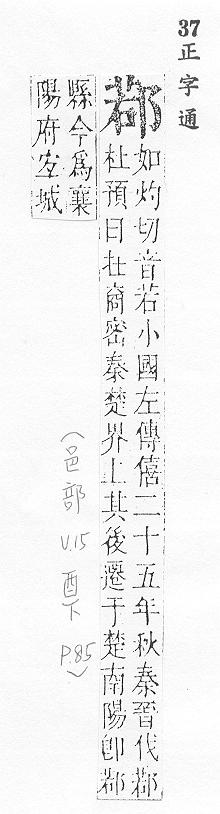 37正字通
鄀
如灼切音若小國左傳僖二十五年秋秦晉伐鄀
杜預曰在商密秦楚界上其後遷于楚南陽卽鄀
縣今爲襄
陽府宜城
(邑部 V.15 酉下 P.85)